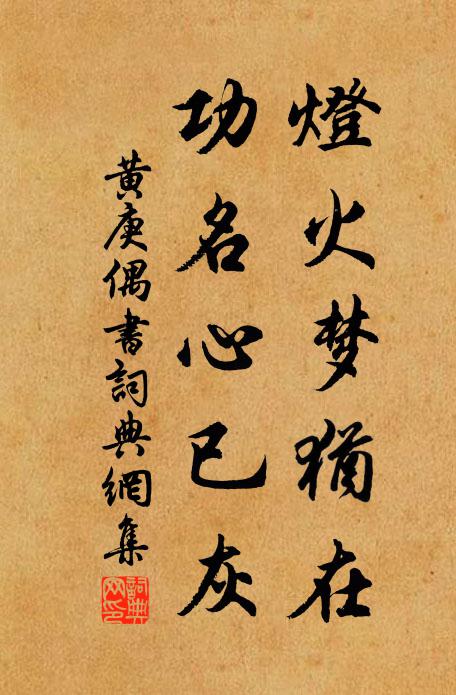 燈火梦猶在
功名心已灰
黄庚偶書詞典網集
詞典
网印